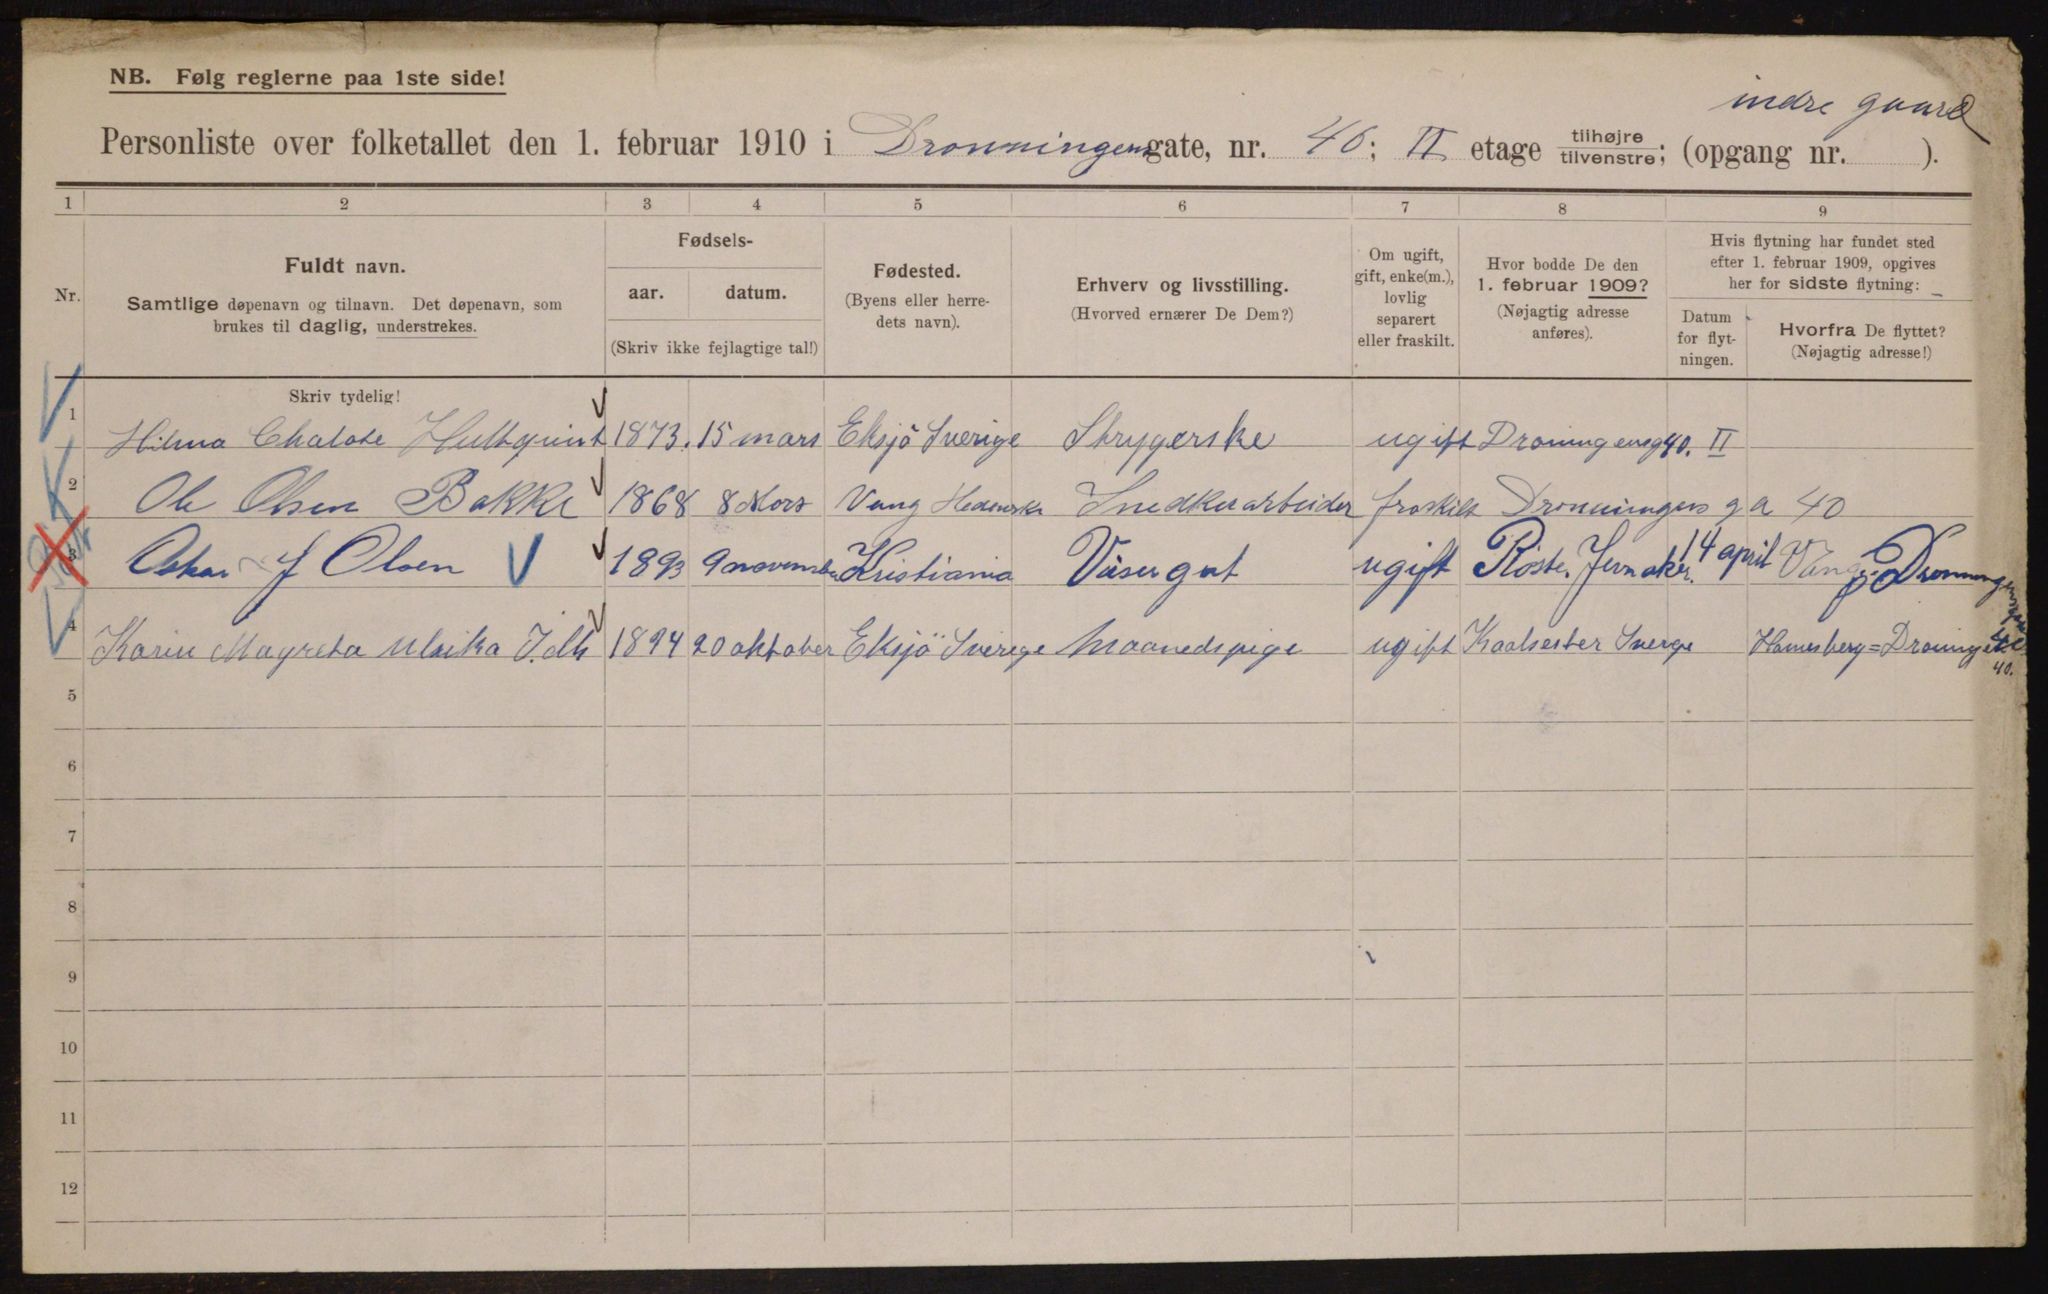 NB. Følg reglerne paa 1ste side!
indre gaard
Personliste over folketallet den 1. februar 1910 i Dronningens gate, nr. 40; II etage tilhøjre tilvenstre; (opgang nr. ).
1 2 3 4 5 6 7 8 9
Nr.
Fuldt navn.
Samtlige døpenavn og tilnavn. Det døpenavn, som
brukes til daglig, understrekes.
Fødsels-
aar. datum.
(Skriv ikke fejlagtige tal!)
Fødested.
(Byens eller herre-
dets navn).
Erhverv og livsstilling.
(Hvorved ernærer De Dem?)
Om ugift,
gift, enke(m.),
lovlig
separert
eller fraskilt.
Hvor bodde De den
1. februar 1909?
(Nøjagtig adresse
anføres).
Hvis flytning har fundet sted
efter 1. februar 1909, opgives
her for sidste flytning:
Datum
for flyt-
ningen.
Hvorfra De flyttet?
(Nøjagtig adresse!)
Skriv tydelig!
1 Hilma Chalote Hultquist 1873. 15 mars Eksjö Sverige Strygerske ugift Droningensg 40. II
2 Ole Olsen Bakke 1868 8 Mars Vang Hedemarke Snedkerarbeider fraskilt Dronningens ga 40
3 Oskar J Olsen 1893 9 november Kristiania Visergut ugift Jevnaker. 14 april Vang
4 Karin Magreta Ulrika 1894 20 oktober Eksjö Sverige Maanedspige ugift Sverge
40.
5
6
7
8
9
10
11
12